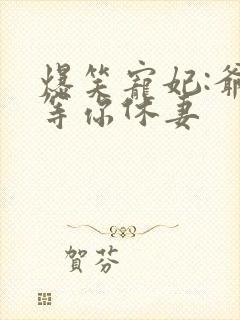 爆笑寵妃:爺
等你休妻
賀芬